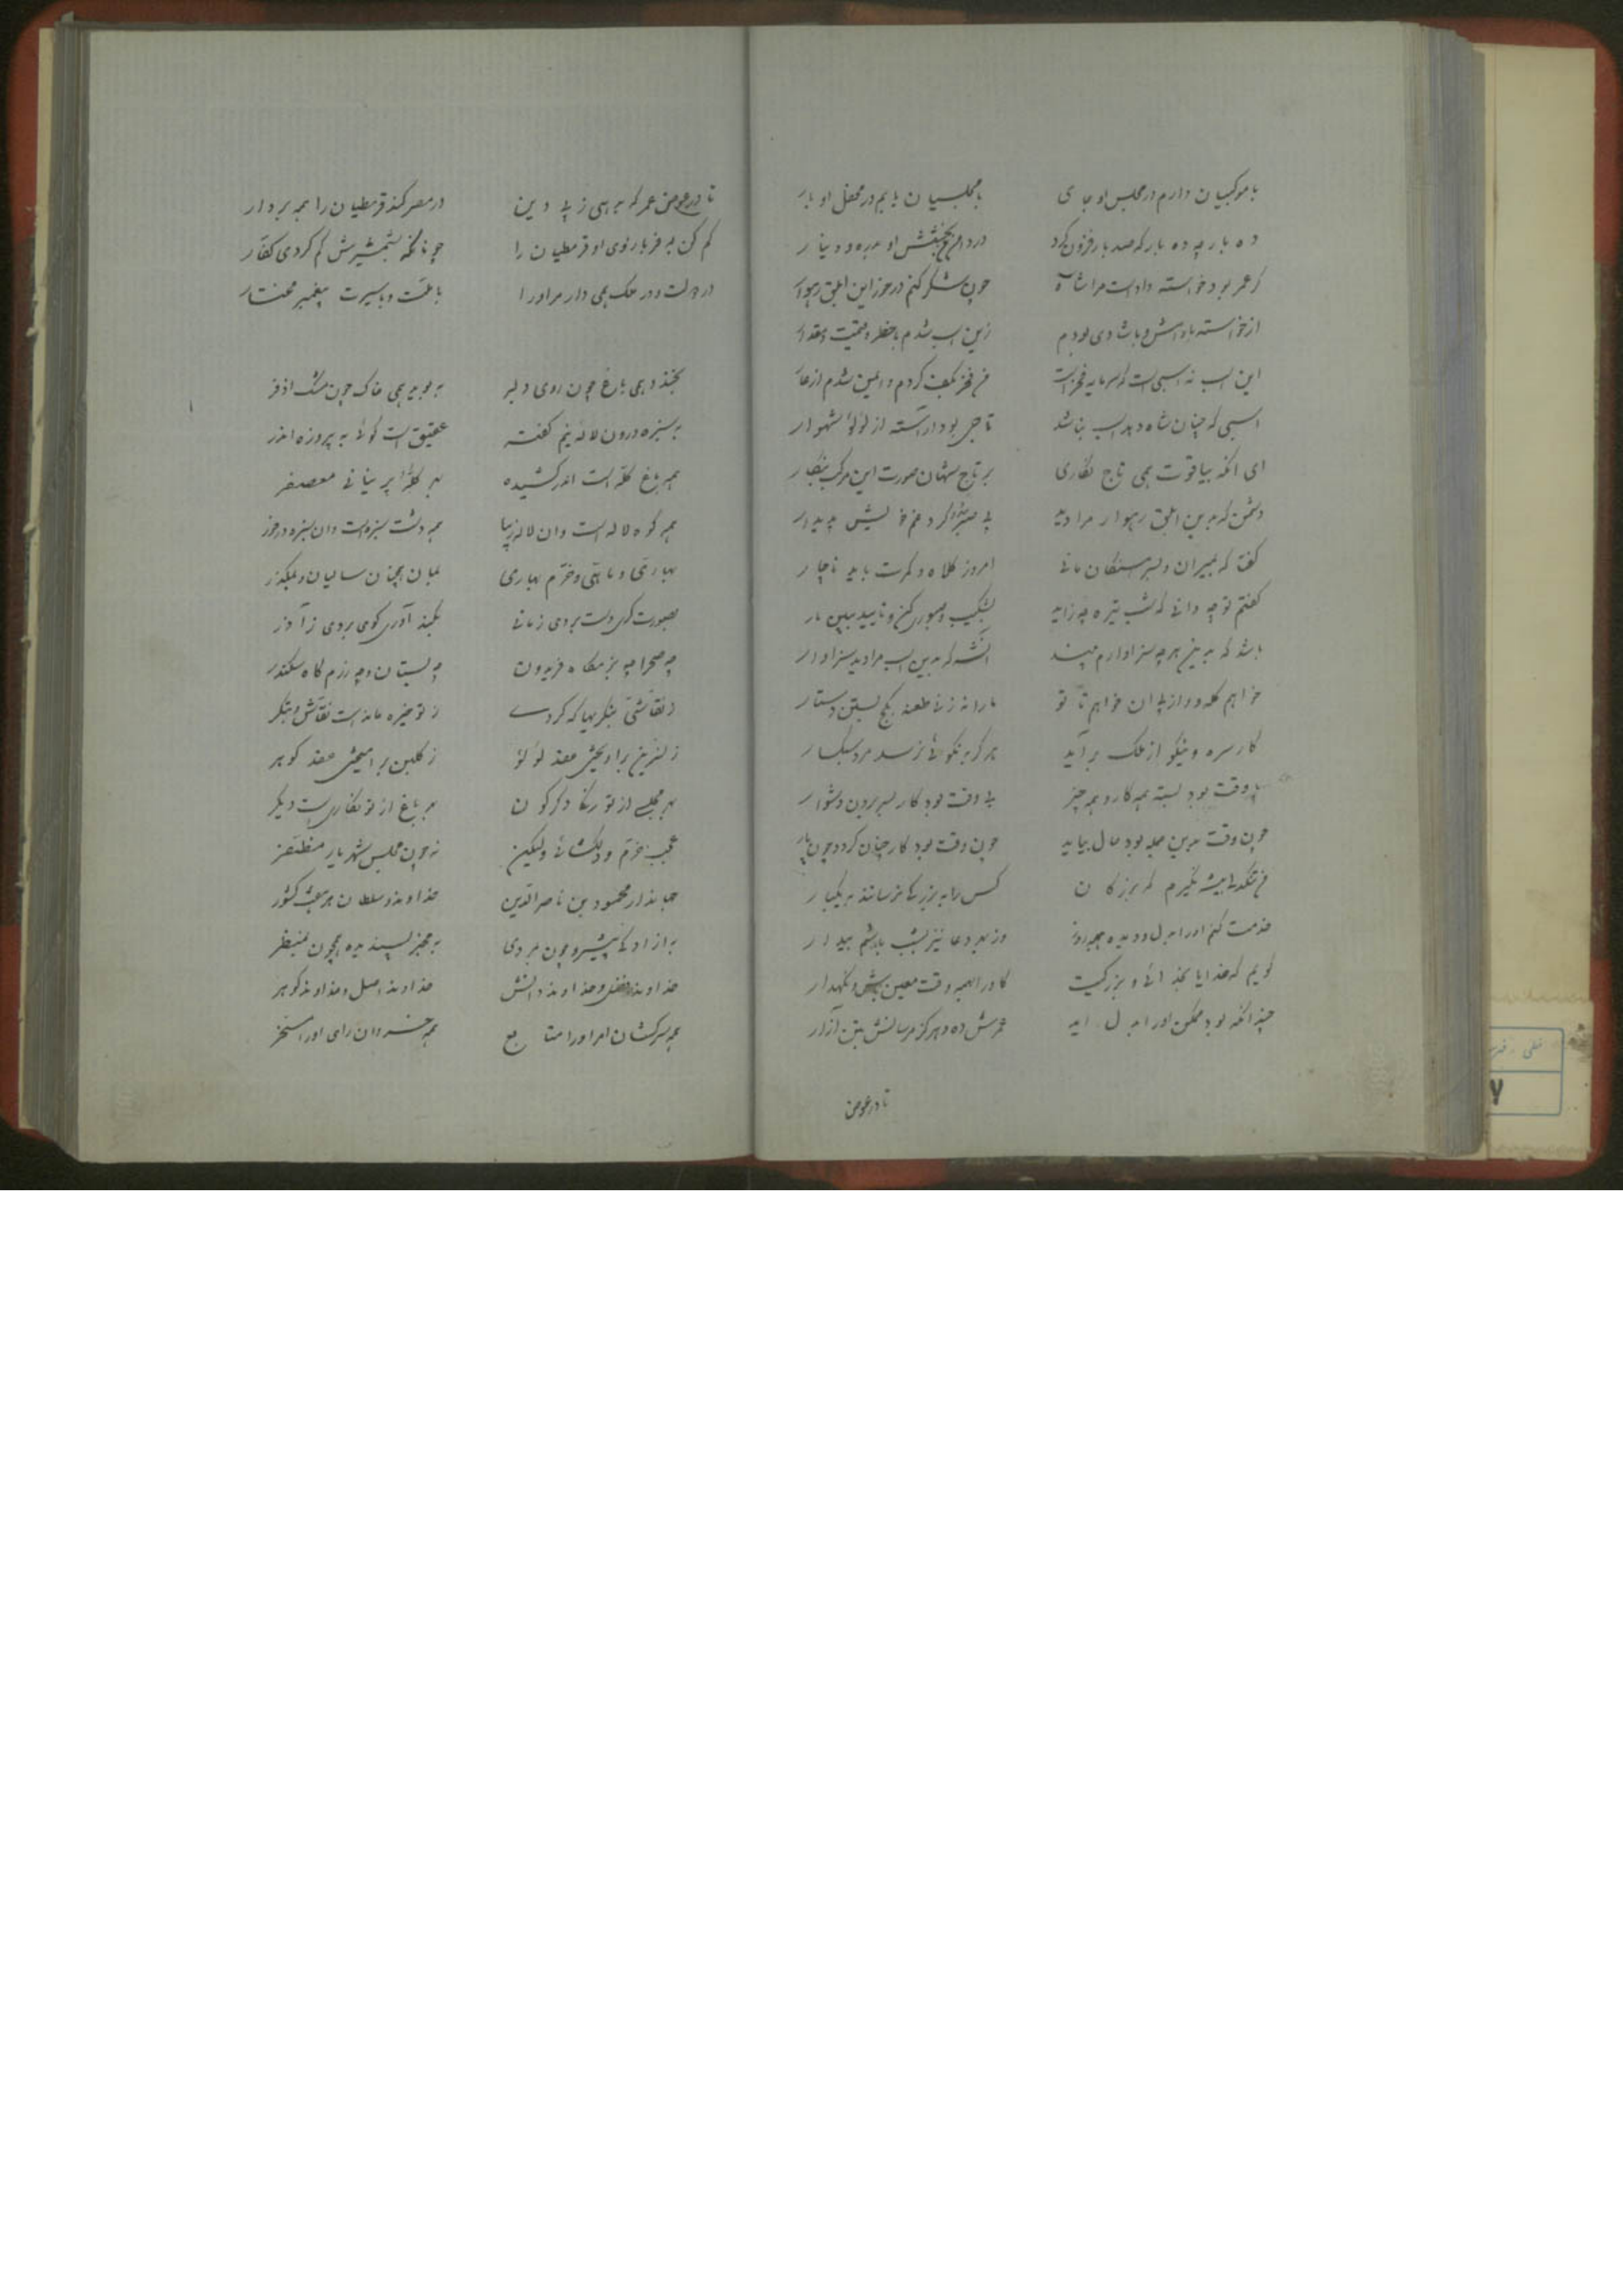 با موکبیان دارم در مجلس او جای
با مجلسیان یابم در محفل او بار
ده بار چه ده بار که صد بار فزون کرد
در دامن بخشش او بدره و دینار
گر عمر بود خواسته دادست مرا شاه
چون شکر کنم در خور این ابلق رهوار
از خواسته با رامش و با شادی بودم
زین اسب شدم با خطر و قیمت و مقدار
این اسب نه اسبی است که سرمایه فخر است
من فخر بکف کردم و ایمن شدم از عار
اسبی که چنان شاه دهد اسب نباشد
تاجی بود آراسته از لؤلؤ شهوار
ای آنکه بیاقوت همی تاج نگاری
بر تاج شهان صورت این مرکب بنگار
دشمن که برین ابلق رهوار مرا دید
بی صبر شد و کرد غم خویش پدیدار
گفتا که بمیران و بسرهنگان مانی
امروز کلاه و کمرت باید ناچار
گفتم تو چه دانی که شب تیره چه زاید
بشکیب و صبوری کن و تا دید ببین بار
باشد که بدین هر چه سزاوارم بیند
آنشه که بدین اسب مرا دید سزاوار
خواهم کله و از پی آن خواهم تا تو
ما را نزنی طعنه بکج بستن دستار
کار سره و نیکو از ملک برآید
هرگز به نکوئی نرسد مرد سبکسار
با وقت بود بسته همه کار و همه چیز
بی وقت بود کار بسر بردن دشوار
چون وقت برین جمله بود مال بیاید
چون وقت بود کار چنان گردد چون پار
من تنگدلی پیشه نگیرم که بزرگان
کس را به بزرگی نرسانند به یکبار
خدمت کنم او را بدل و دیده همه روز
وز بهر دعا نیز بشب باشم بیدار
گویم که خدایا بخدائی و بزرگیت
کاو را همه وقت معین باش و نگهدار
چندانکه بود ممکن او را بدل آید
عمرش ده و هرگز مرسانش بتن آزار
تا در عوض
تا در عوض عمر که بدهی ز پی دین
در مصر کند قرمطیان را همه بر دار
کم کن به قر با زوی او قرمطیان را
چونانکه بشمشیرش کم کردی کفار
در دولت و در ملک همی دار مر او را
با سنت و با سیرت پیغمبر مختار
بخندد همی باغ چون روی دلبر
ببوید همی خاک چون مشک اذفر
بسبزه درون لاله نیم کفته
عقیق است گوئی به پیروزه اندر
همه باغ کله است اندر کشیده
بهر کله‌ای پرنیانی معصفر
همه کوه لاله است و ان لاله زیبا
همه دشت سبزه است و ان سبزه در خور
بهاری و باتی و خرم بهاری
بمان همچنان سالیان و بمگذر
بصورت گری دست بردی ز مانی
بکند آوری گوی بردی ز آزر
چه صحرا چه بزمگاه فریدون
چه بستان و چه رزم گاه سکندر
ز نقاشی بتگریها که کردی
ز تو خیره مانده است نقاش و بتگر
ز نسرین برآویختی عقد لؤلؤ
ز گلبن برآمیختی عقد گوهر
بهر مجلسی از تو رنگی دگرگون
بهر باغ از تو نگاری است دیگر
عجب خرم و دلگشائی ولیکن
نه چون مجلس شهریار مظفر
جهاندار محمود بن ناصرالدین
خداوند و سلطان هر هفت کشور
به آزادگی پیشرو چون بمردی
به مخبر پسندیده همچون بمنظر
خداوند فضل و خداوند دانش
خداوند اصل و خداوند گوهر
همه سرکشان امر او را متابع
همه خسروان رای او را مسخر
خطی - فهر
۷